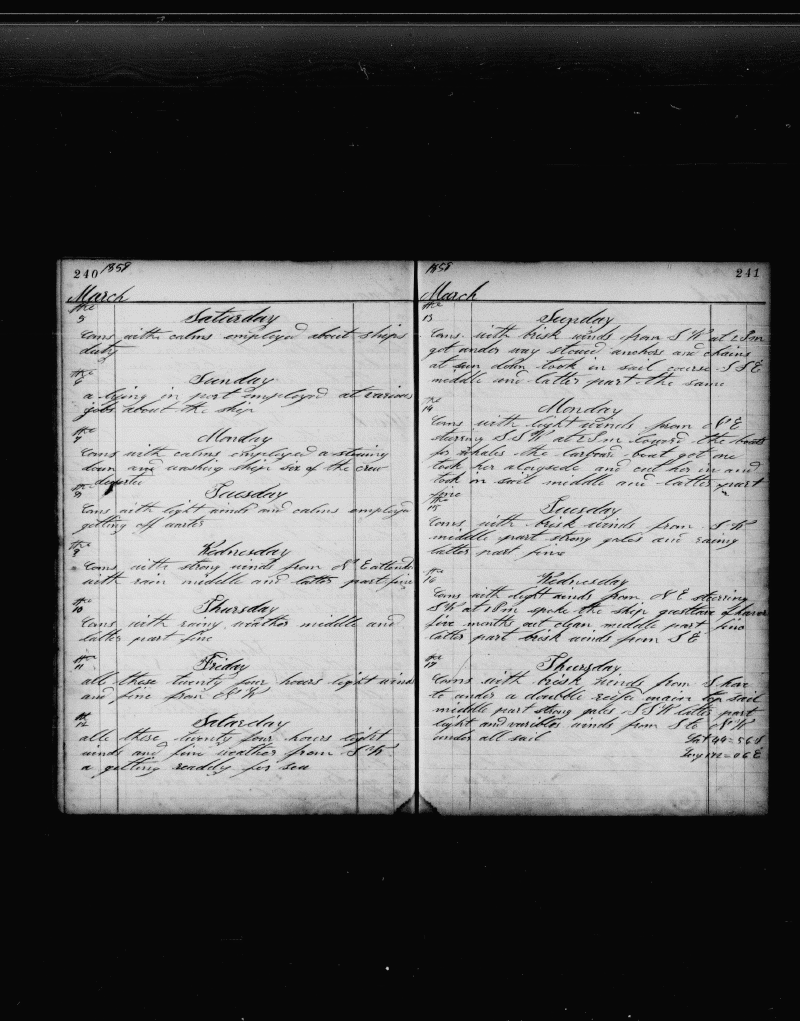 240 1858
March
the
5 Saturday
Coms with calms employed about ships
duty
the
6 Sunday
a lying in port employed at various
jobs about the ship
the
7 Monday
Coms with calms employed a
down and washing ship six of the crew
deserted
the
8 Tuesday
Coms with light winds and calms employed
getting off water
the
9 Wednesday
Coms with strong winds from N E attended
with rain middle and latter part fine
the
10 Thursday
Coms with rainy weather middle and
latter part fine
the
11 Friday
all these twenty four hours light winds
and fine from N W
the
12 Saturday
all these twenty four hours light
winds and fine weather from S W
a getting readdy for sea
1858 241
March
the
13 Sunday
Coms with brisk winds from S W at 2 P m
got under way stowed anchors and chains
at sun down took in sail course S S E
middle and latter part the same
the
14 Monday
Coms with light winds from N E
sturring S S W at 2 P m the boats
for whales the larboard boat got one
took her alongside and cut her in and
took in sail middle and latter part
fine
the
15 Tuesday
Coms with brisk winds from S W
middle part strong gales and raing
latter part fine
the
16 Wednesday
Coms with light winds from N E steerring
S W at 1 P m spoke the ship of havre
five months out clean middle part fine
latter part brisk winds from S E
the
17 Thursday
Coms with brisk winds from S
to under a doubble reifed main top sail
middle part strong gales S S W latter part
light and varibles winds from S to N W
under all sail Lat 44=56 S
Long 172=06 E